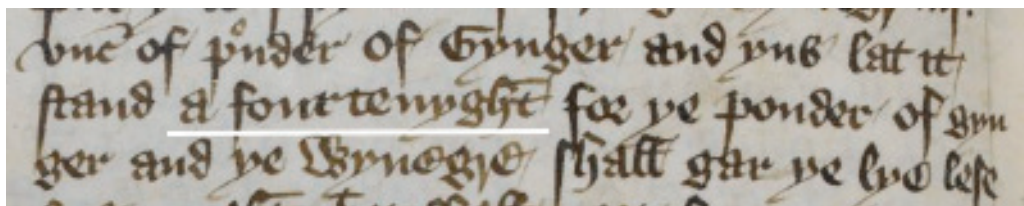 vnc̄ of pouder of Gynger and yus lat it
stand a fourtenyght for ye pouder of gyn
ger and ye Wynegre shall gar ye lye lese